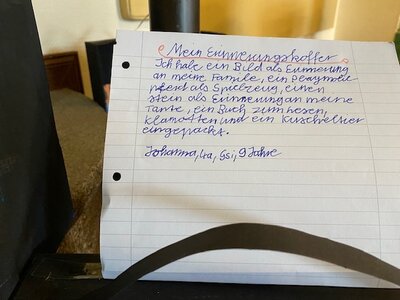 Mein Erinnerungskoffer
Ich habe ein Bild als Erinnerung
an meine Familie, ein Playmobil
pferd als Spielzeug, einen
stein als Erinnerung an meine
Tante, ein Buch zum lesen,
Klamotten und ein Kuscheltier
eingepackt.
Johanna, 4a, Gsi, 9 Jahre